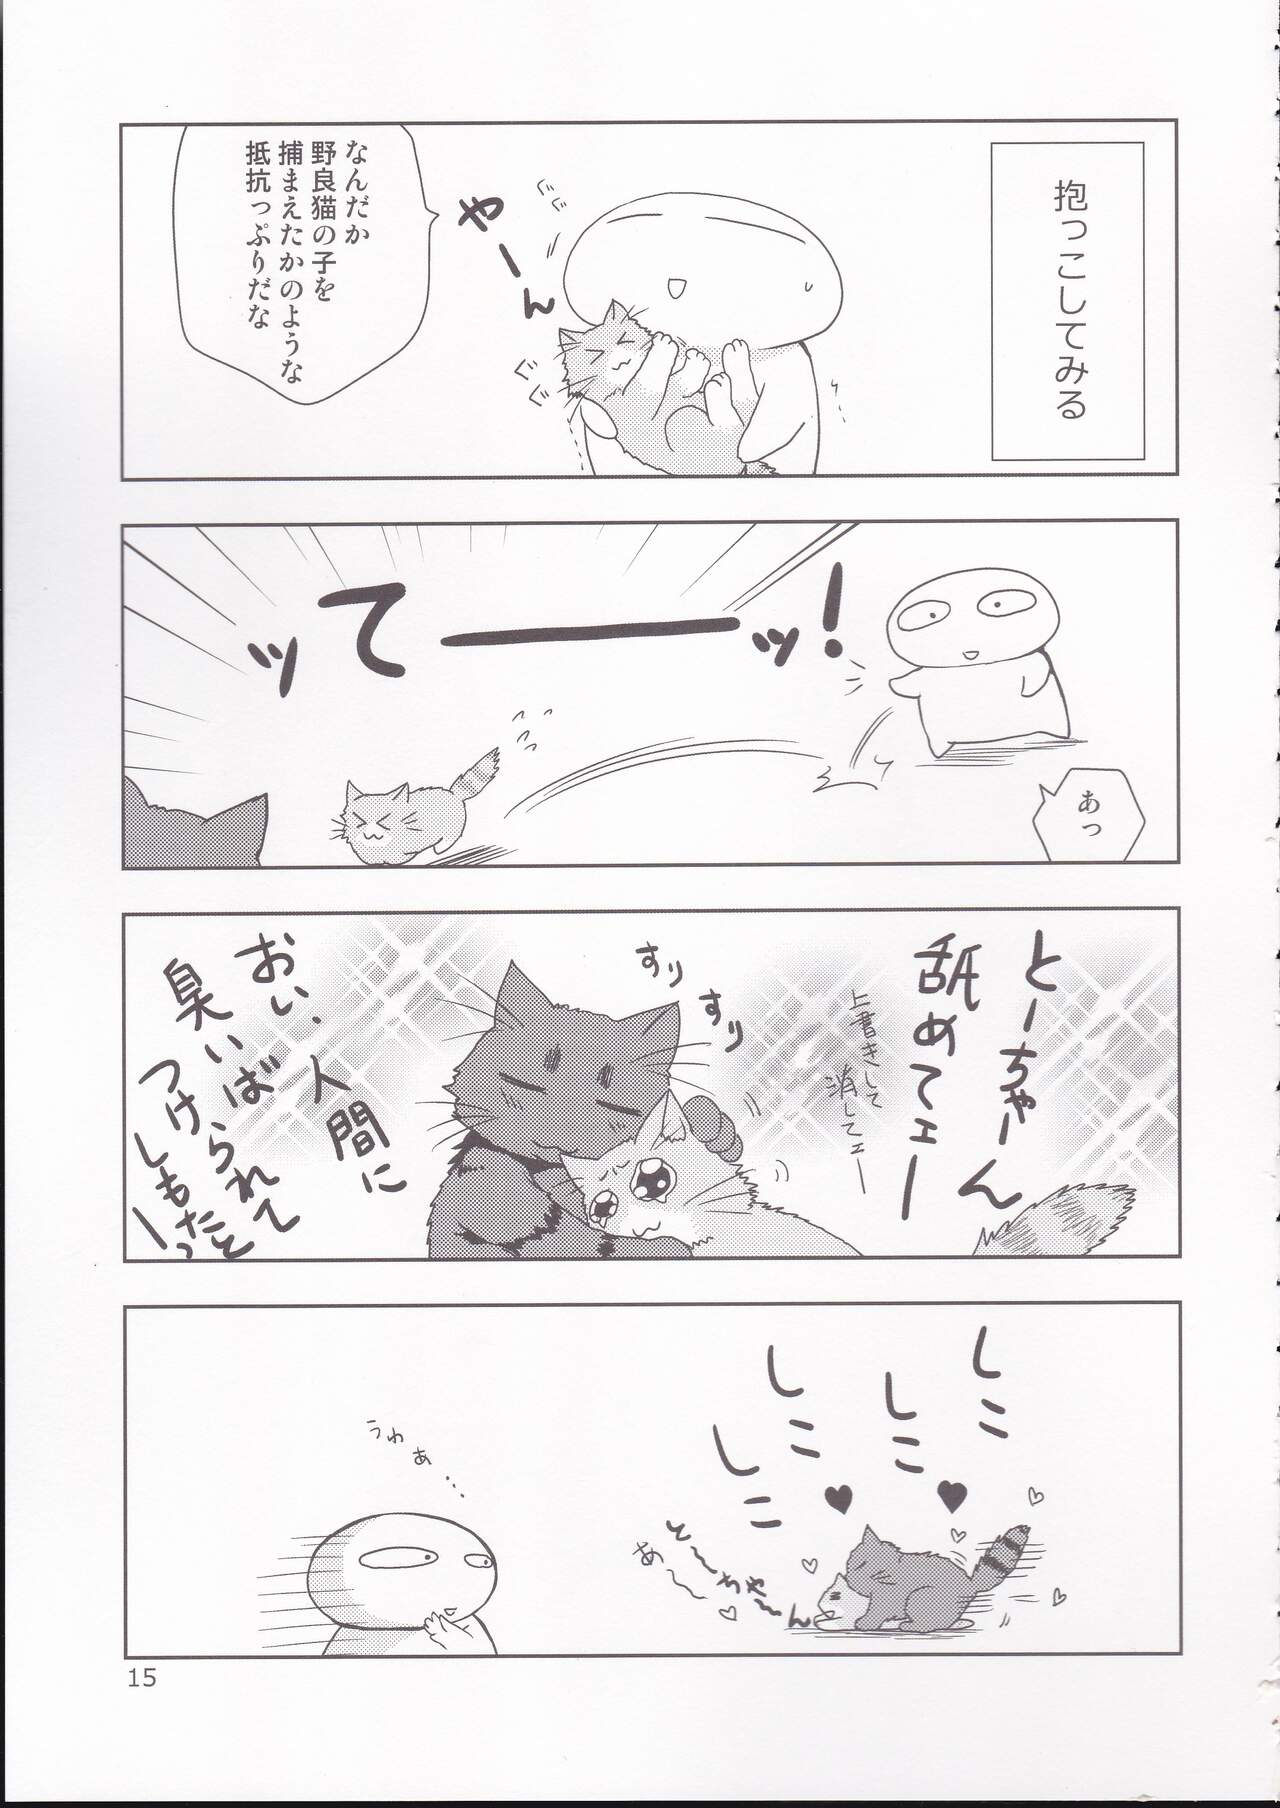 抱っこしてみる
やーん
ぐぐ
ぐぐ
なんだか
野良猫の子を
捕まえたかのような
抵抗っぷりだな
ッてーーッ!
あっ
とーちゃーん
舐めてェー
上書きして
消してェー
すりすり
おい、人間に
臭いばつけられて
しもたとーっ
しこ
しこ
しこ
しこ
とーちゃーん
あ〜〜
うわぁ…
15